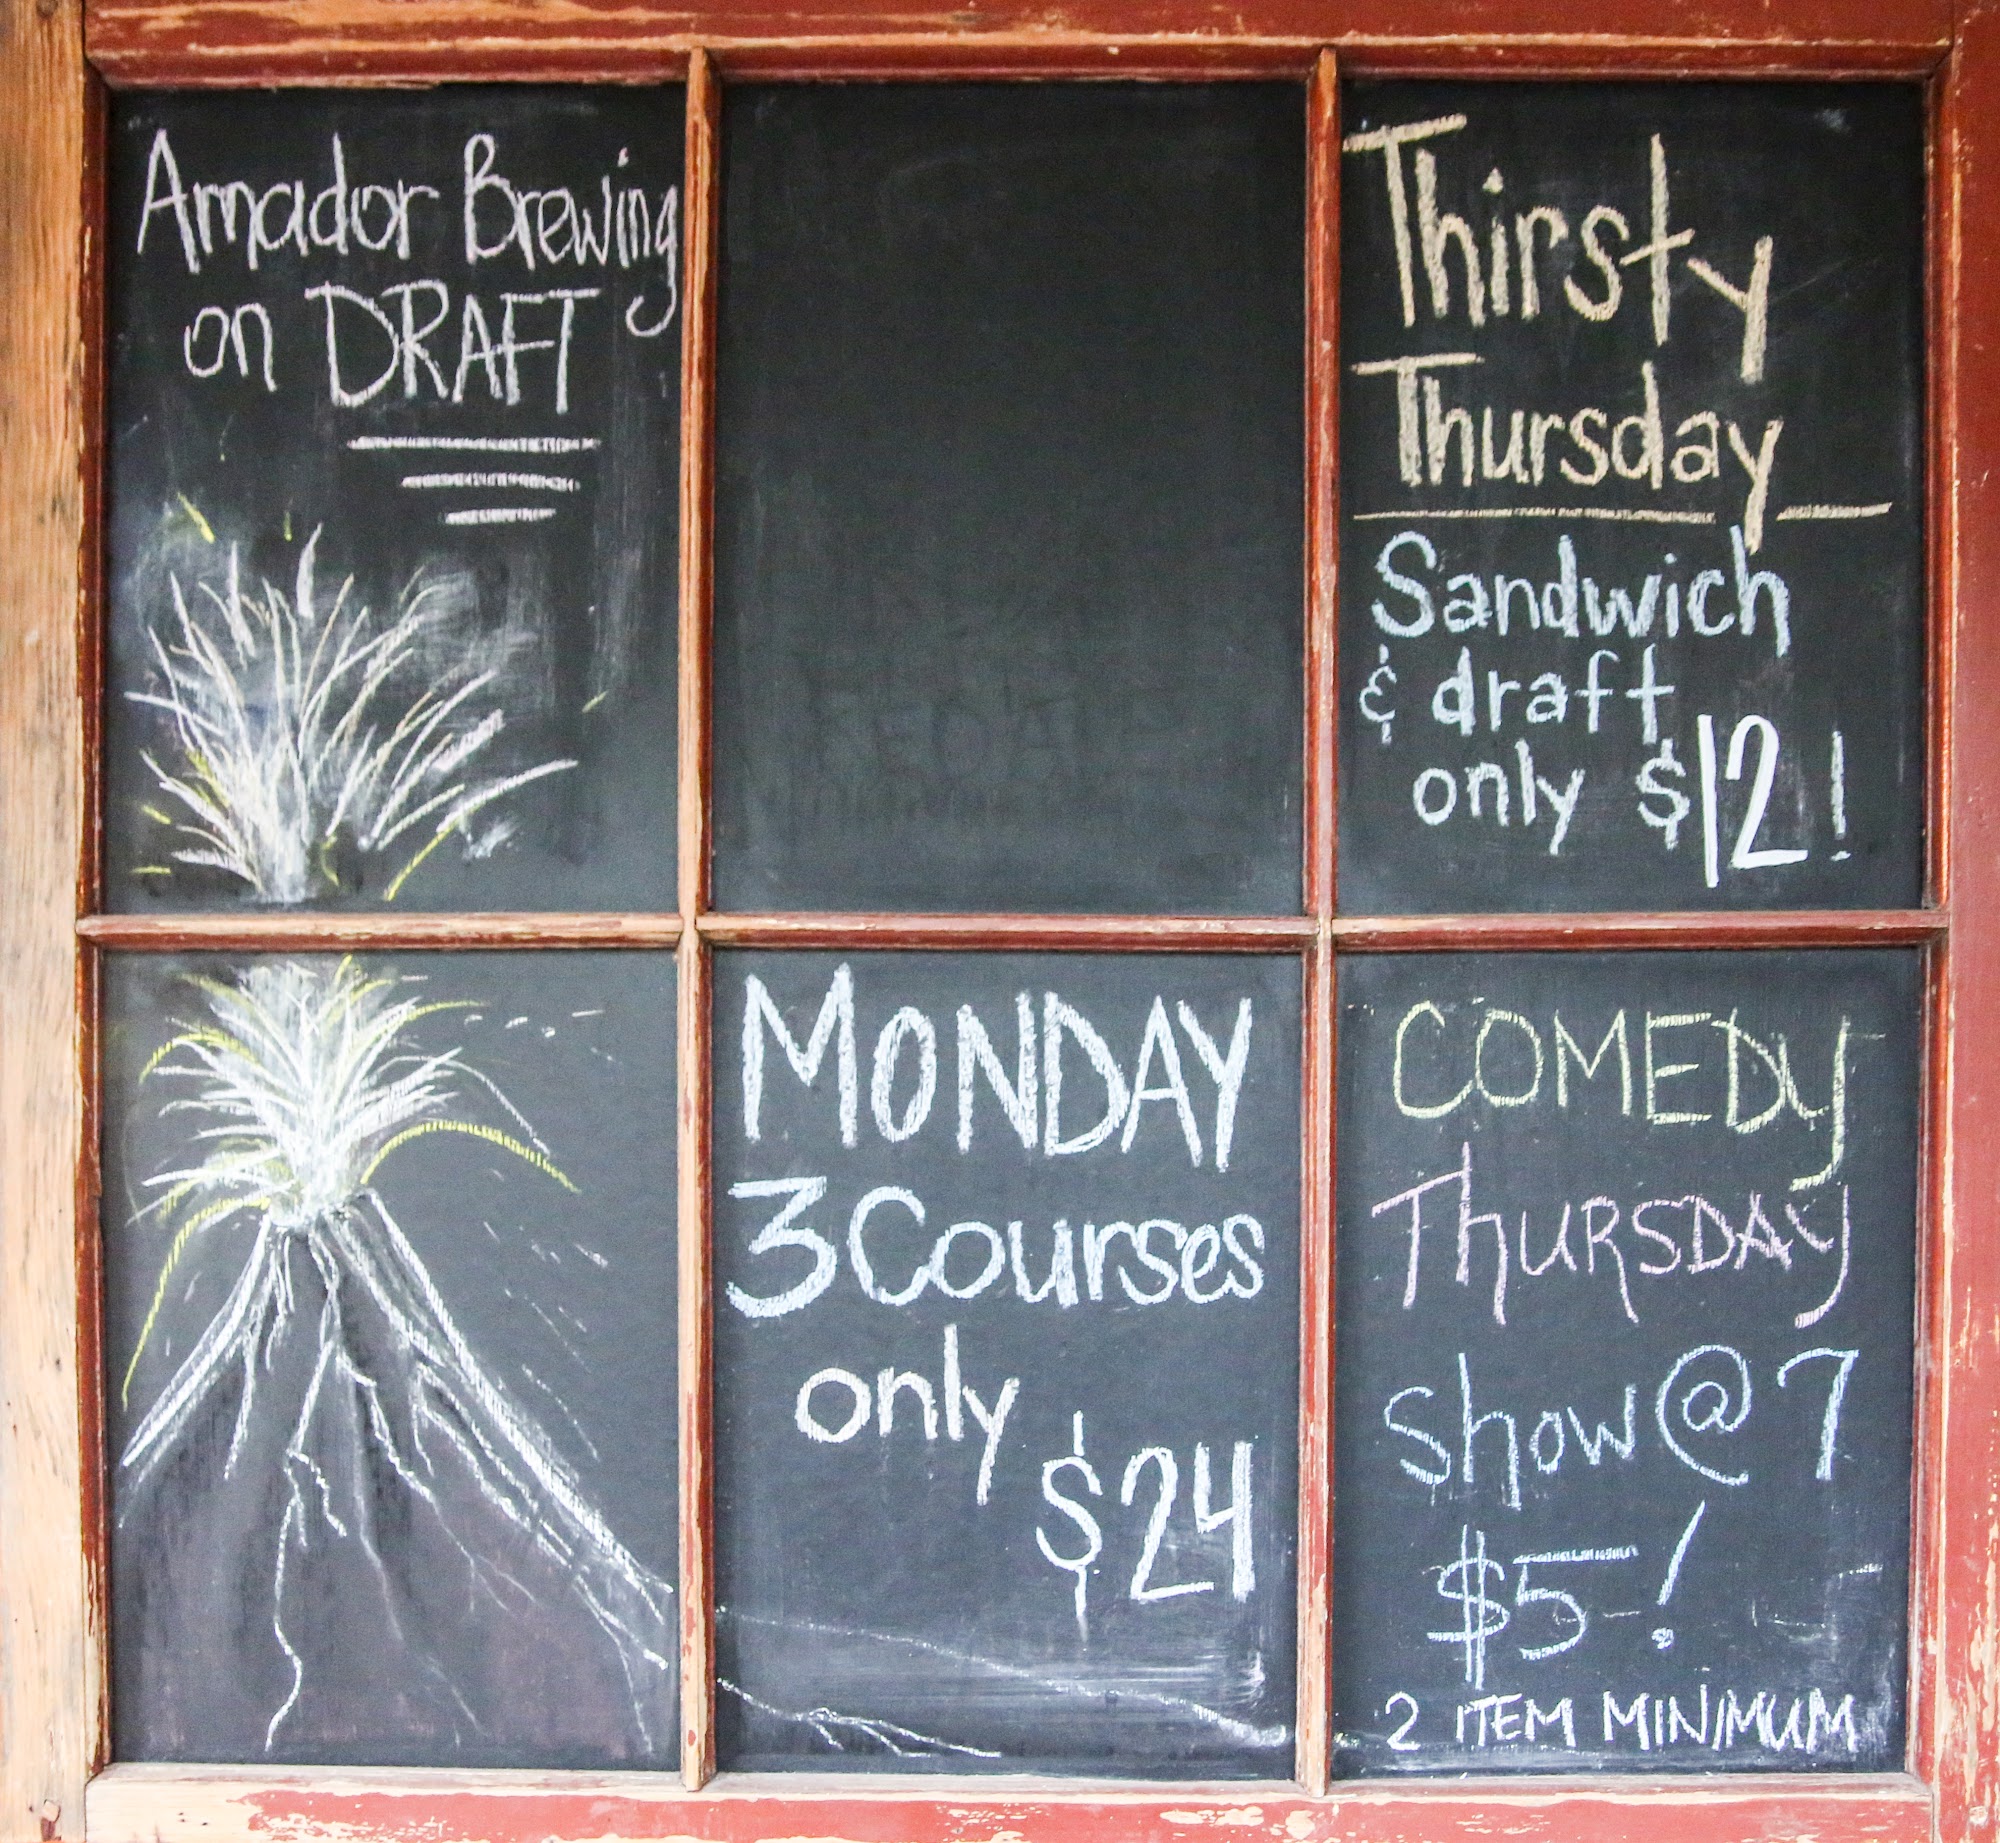 Amador Brewing
on DRAFT
Thirsty
Thursday
Sandwich
& draft
only $12!
MONDAY
3 Courses
only
$24
COMEDY
THURSDAY
Show @ 7
$5!
2 ITEM MINIMUM